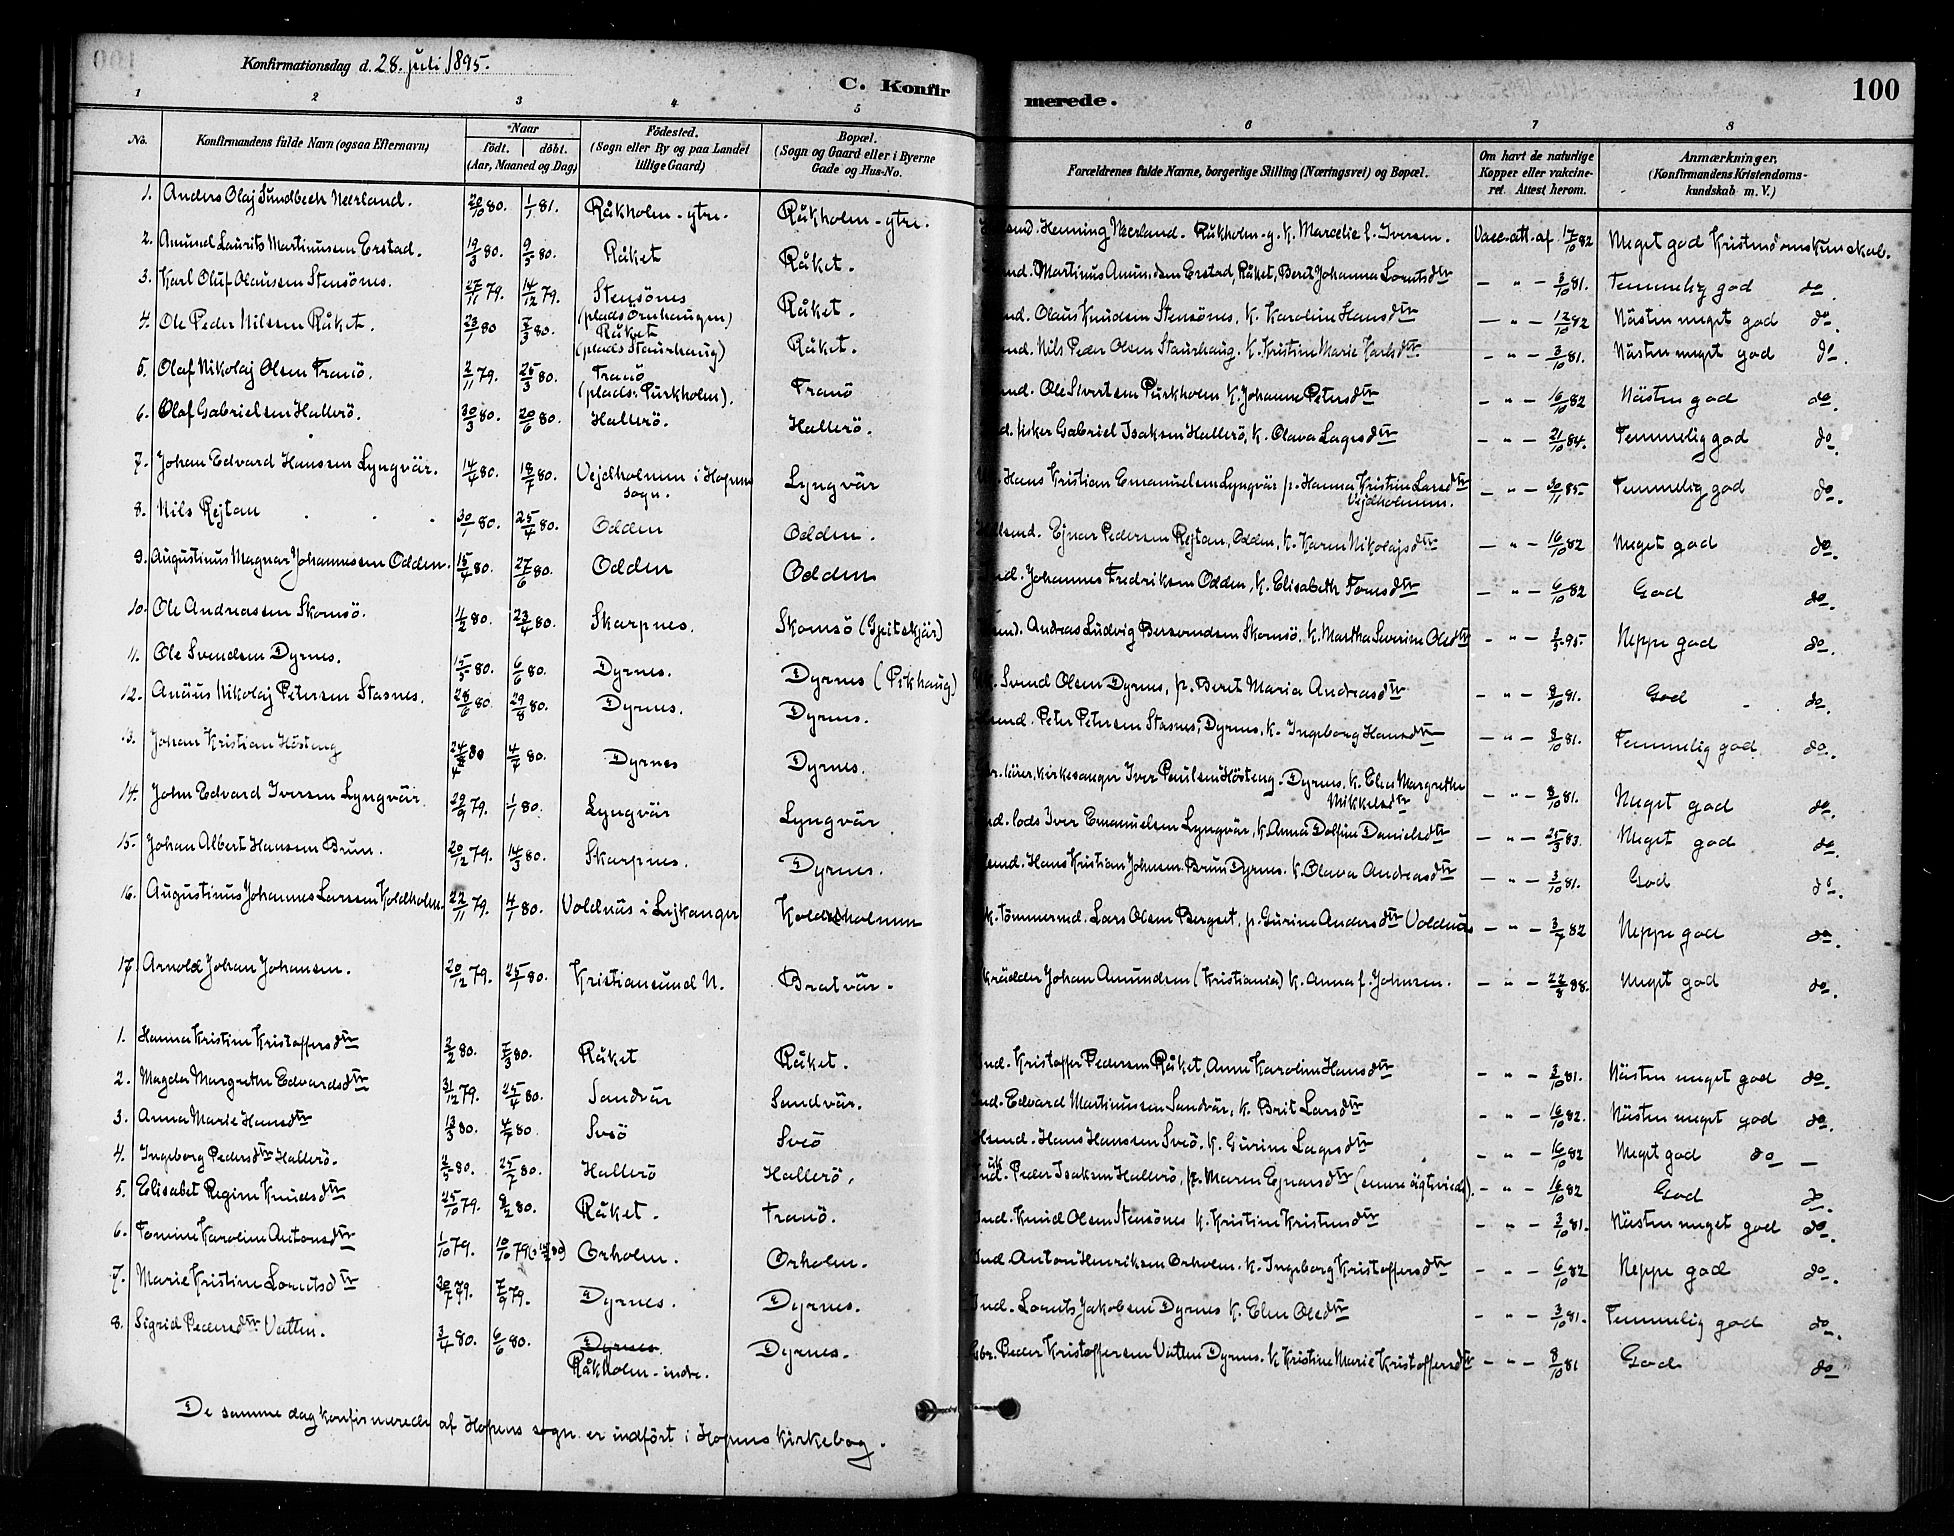 Konfirmationsdag d. 28. juli 1895.
C. Konfirmerede. 100
1 2 3 4 5 6 7 8
No. Konfirmandens fulde Navn (ogsaa Efternavn) Naar födt. döbt. (Aar, Maaned og Dag) Födested. (Sogn eller By og paa Landet tillige Gaard) Bopæl. (Sogn og Gaard eller i Byerne Gade og Hus-No. Forældrenes fulde Navne, borgerlige Stilling (Næringsvei) og Bopæl. Om havt de naturlige Kopper eller vakcineret. Attest herom. Anmærkninger. (Konfirmandens Kristendomskundskab m. V.)
1. Anders Olaj Sundbech Neerland. 20/10 80. 1/1 81. Råkholm-ytre. Råkholm-ytre. Henning Neerland. Råkholm-y. K. Marcelie f. Iversen. Vacc.att.af 17/10 82 Meget god Kristendomskunskab.
2. Amund Laurits Martinusen Erstad. 19/3 80. 9/5 80. Råket Råket. Martinus Amundsen Erstad, Råket, Beret Johanna Lorntsdtr — " — 3/10 81. Temmelig god do.
3. Karl Oluf Olausen Stensönes. 27/11 79. 14/12 79. Stensönes (plads Örnhaugen) Råket. Ind. Olaus Knudsen Stensönes, K. Karoline Hansdtr — " — 12/10 82 Nästen meget god do.
4. Ole Peder Nilsen Råket. 23/1 80 7/3 80. Råket (plads Staurhaug) Råket. Ind. Nils Peder Olsen Staurhaug. K. Kristine Marie Karlsdtr — " — 3/10 81. Nästen meget god do.
5. Olaf Nikolaj Olsen Tranö. 2/11 79. 25/3 80. Tranö (plads: Purkholm). Tranö Ind. Ole Sivertsen Purkholm K. Johanne Petersdtr — " — 16/10 82 Nästen god do.
6. Olaf Gabrielsen Hallerö. 30/3 80. 20/6 80. Hallerö. Hallerö. Ind. fisker Gabriel Isaksen Hallerö, K. Olava Lagesdtr — " — 21/10 84. Temmelig god do.
7. Johan Edvard Hanssen Lyngvär. 14/4 80. 18/7 80. Vejdholmen i Hopens sogn. Lyngvär Hans Kristian Emanuelsen Lyngvär p. Hanna Kristine Larsdtr Vejdholmen. — " — 30/11 85 Temmelig god do.
8. Nils Rejtan 30/1 80. 25/4 80. Odden Odden. Ejnar Pedersen Rejtan, Odden, K. Karen Nikolajsdtr — " — 16/10 82 Meget god do.
9. Augustinus Magnar Johannesen Odden. 15/4 80. 27/6 80. Odden Odden Ind. Johannes Fredriksen Odden, K. Elisabeth Tomsdtr — " — 6/10 82 God do.
10. Ole Andreassen Skomsö. 11/2 80. 23/4 80. Skarpnes. Skomsö (Gpitskjär) Andreas Ludvig Bersvendsen Skomsö. K. Martha Severine Olsdtr — " — 3/5 95. Neppe god do.
11. Ole Svendsen Dyrnes. 15/3 80. 6/6 80. Dyrnes. Dyrnes (Pikhaug) Svend Olsen Dyrnes, p. Beret Maria Andreasdtr — " — 8/10 81. God do.
12. Anäus Nikolaj Petersen Stasnes. 28/6 80. 29/8 80. Dyrnes. Dyrnes. Peter Petersen Stasnes, Dyrnes, K. Ingeborg Hansdtr — " — 8/10 81. Temmelig god do.
13. Johan Kristian Hösteng 24/2 80 4/4 80. Dyrnes Dyrnes. lärer, kirkesanger Iver Paulsen Hösteng. Dyrnes. K. Elen Margrethe Mikkelsdtr — " — 8/10 81. Meget god do.
14. John Edvard Iversen Lyngvär 20/9 79. 1/1 80. Lyngvär Lyngvär Ind. lods Iver Emanuelsen Lyngvär, K. Anna Dolfine Danielsdtr — " — 25/3 83. Meget god do.
15. Johan Albert Hansen Brun. 20/12 79. 14/3 80. Skarpnes. Dyrnes. Hans Kristian Johnsen Brun Dyrnes. K. Olava Andreasdtr — " — 3/10 81. God do.
16. Augustinus Johannes Larssen Koldholm. 22/11 79. 4/1 80. Voldnäs i Lejkanger Koldholmen tömmermd. Lars Olsen Bergset, p. Gurine Andersdtr Voldnäs — " — 3/7 82 Neppe god do.
17. Arnold Johan Johansen. 20/12 79. 25/1 80. Kristiansund N. Bratvär. skrädder Johan Amundsen (Kristiania) K. Anna f. Johnsen. — " — 22/8 88. Meget god do.
1. Hanna Kristine Kristoffersdtr 2/2 80. 7/3 80. Råket Råket. Ind. Kristoffer Pedersen Råket, Anne Karoline Hansdtr — " — 3/10 81. Nästen meget god do.
2. Magda Margrethe Edvardsdtr 31/12 79. 25/4 80. Sandvär Sandvär. Ind. Edvard Martinussen Sandvär, K. Brit Larsdtr — " — 16/10 82. Nästen meget god do.
3. Anna Marie Hansdtr 13/3 80. 4/7 80. Sveö Sveö Hans Hanssen Sveö. K. Gurine Lagesdtr — " — 16/10 82 Meget god do —
4. Ingeborg Pedersdtr Hallerö. 2/5 80. 25/7 80. Hallerö Hallerö. Peder Isaksen Hallerö, p. Maren Ejnarsdtr (senere ägteviede). — " — 16/10 82 God do.
5. Elisabet Regine Knudsdtr 25/10 79. 8/2 80. Råket. Tranö. Ind. Knud Olsen Stensönes K. Kristine Kristensdtr — " — 3/10 81. Nästen meget god do.
6. Tomine Karoline Antonsdtr 1/10 79. 10/10 79 Orholm. Orholm. Ind. Anton Henriksen Orholm. K. Ingeborg Kristoffersdtr — " — 6/10 82 Neppe god do.
7. Marie Kristine Lorntsdtr 30/7 79. 7/9 79. Dyrnes. Dyrnes. Ind. Lornts Jakobsen Dyrnes K. Elen Olsdtr — " — 3/10 81. Temmelig god do.
8. Sigrid Pedersdtr Vatten. 3/4 80. 6/6 80. Dyrnes. Råkholm-indre. Dyrnes. Gbr. Peder Kristoffersen Vatten Dyrnes. K Kristine Marie Kristoffersdtr — " — 8/10 81 God do
De samme dag konfirmerede af Hopens sogn er indfört i Hopens kirkebog.